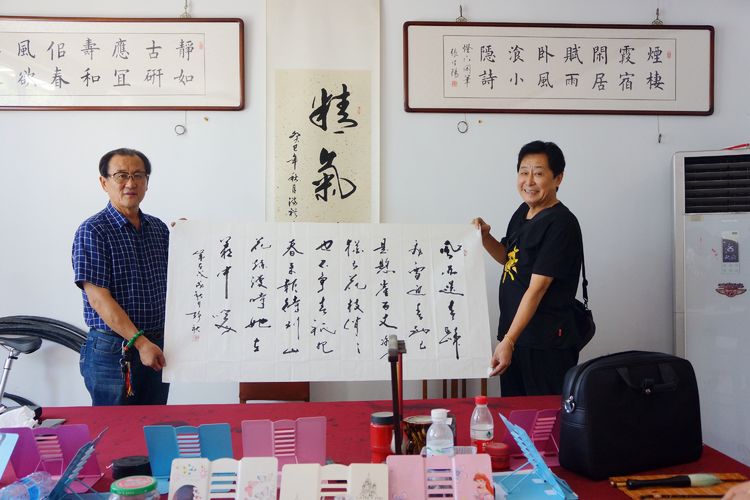 静如
古研
應宜
壽和
侣春
風欲
精氣
癸巳年秋月
煙棲
霞宿
閑居
賦雨
卧風
飡小
隱詩
风雨送春歸
飛雪迎春到已
是懸崖百丈冰
猶有花枝俏〻
也不争春祇把
春来報待到山
花爛漫時她在
叢中笑